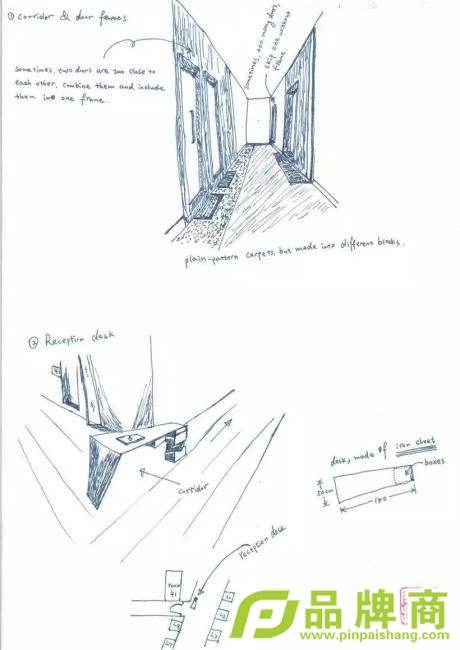 ① corridor & door frames
sometimes, two doors are too close to
each other, combine them and include
them into one frame.
sometimes, too many doors,
skip one without
frame
plain-pattern carpets, but made into different blocks.
② Reception desk
corridor
desk, made of iron sheet
boxes
50cm
140
reception desk
41
品牌商
www.pinpaishang.com